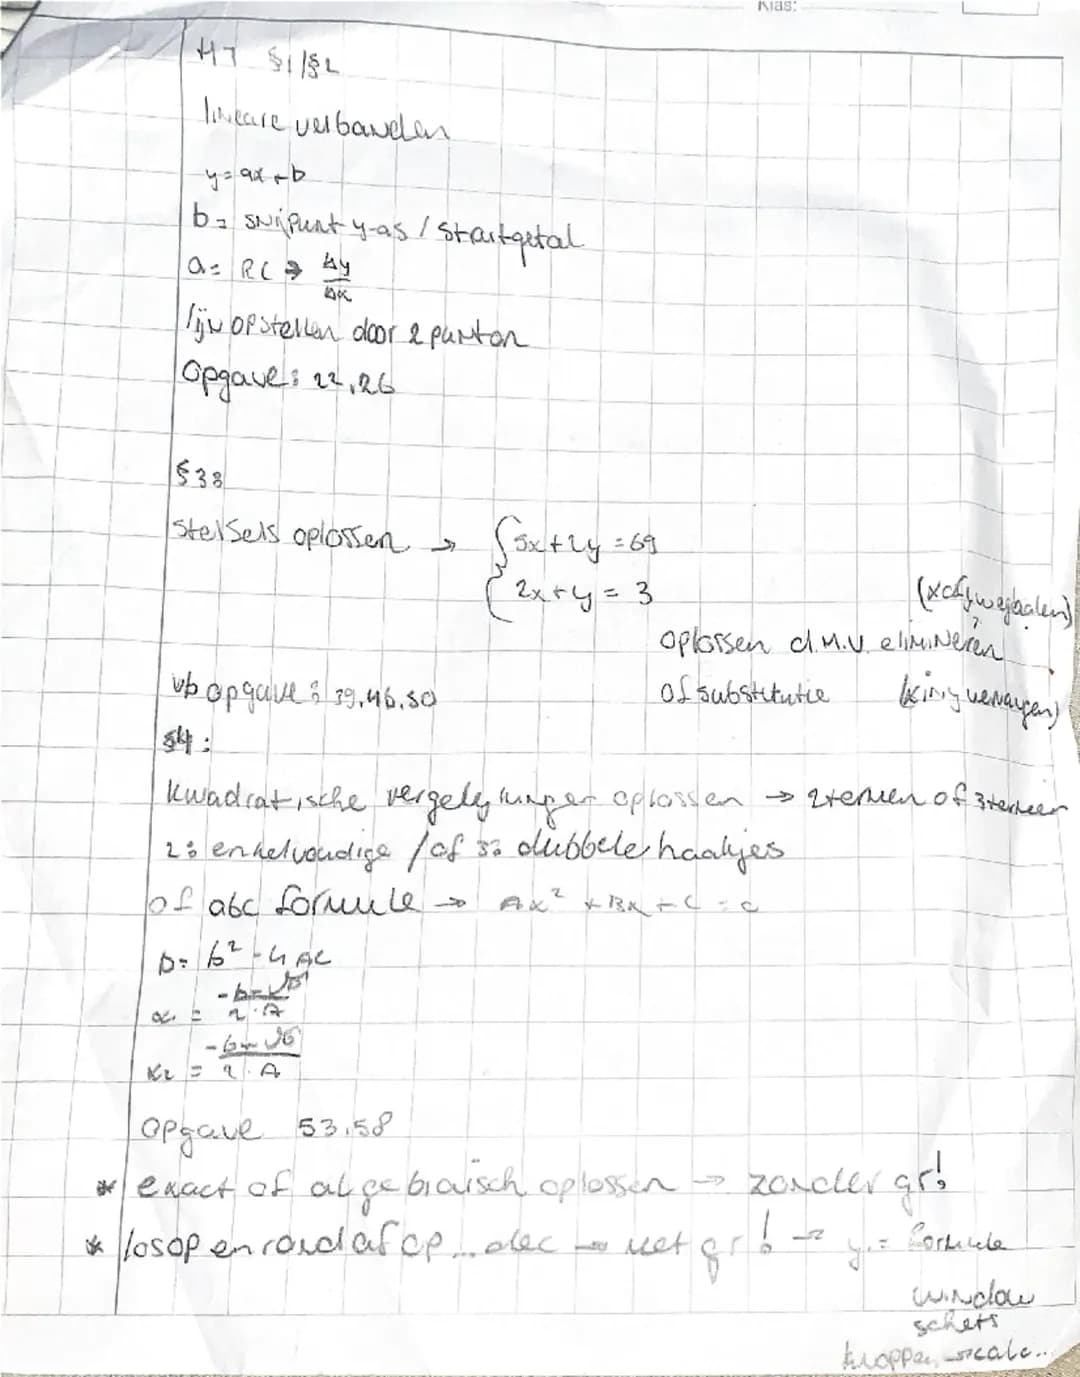 Klas:
H7 §1/§2
lineare verbanden
y=ax+b
b= snijpunt y-as / startgetal
a= RC → Δy/Δx
lijn opstellen door 2 punten
Opgave: 22,26
§3:
Stelsels oplossen → { 5x+2y=69
2x+y=3
(x of y weghalen)
oplossen d.m.v. elimineren
vb opgave: 39,46,50
of substitutie
vervangen)
§4:
kwadratische vergelijkingen oplossen → 2termen of 3termen
2: enkelvoudige / of 3: dubbele haakjes
of abc formule → Ax² + Bx + C = 0
D= b² -4AC
x₁ = -b-√D / 2·A
x₂ = / 2·A
opgave 53,58
* exact of algebraïsch oplossen → zonder gr!
* los op en rond af op ... dec → met gr! → y₁= formule
window
schets
knoppen → calc..